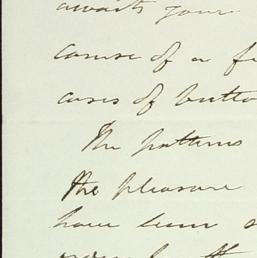 awaits your
course of a f
cases of butto
The patterns
the pleasure
have been s